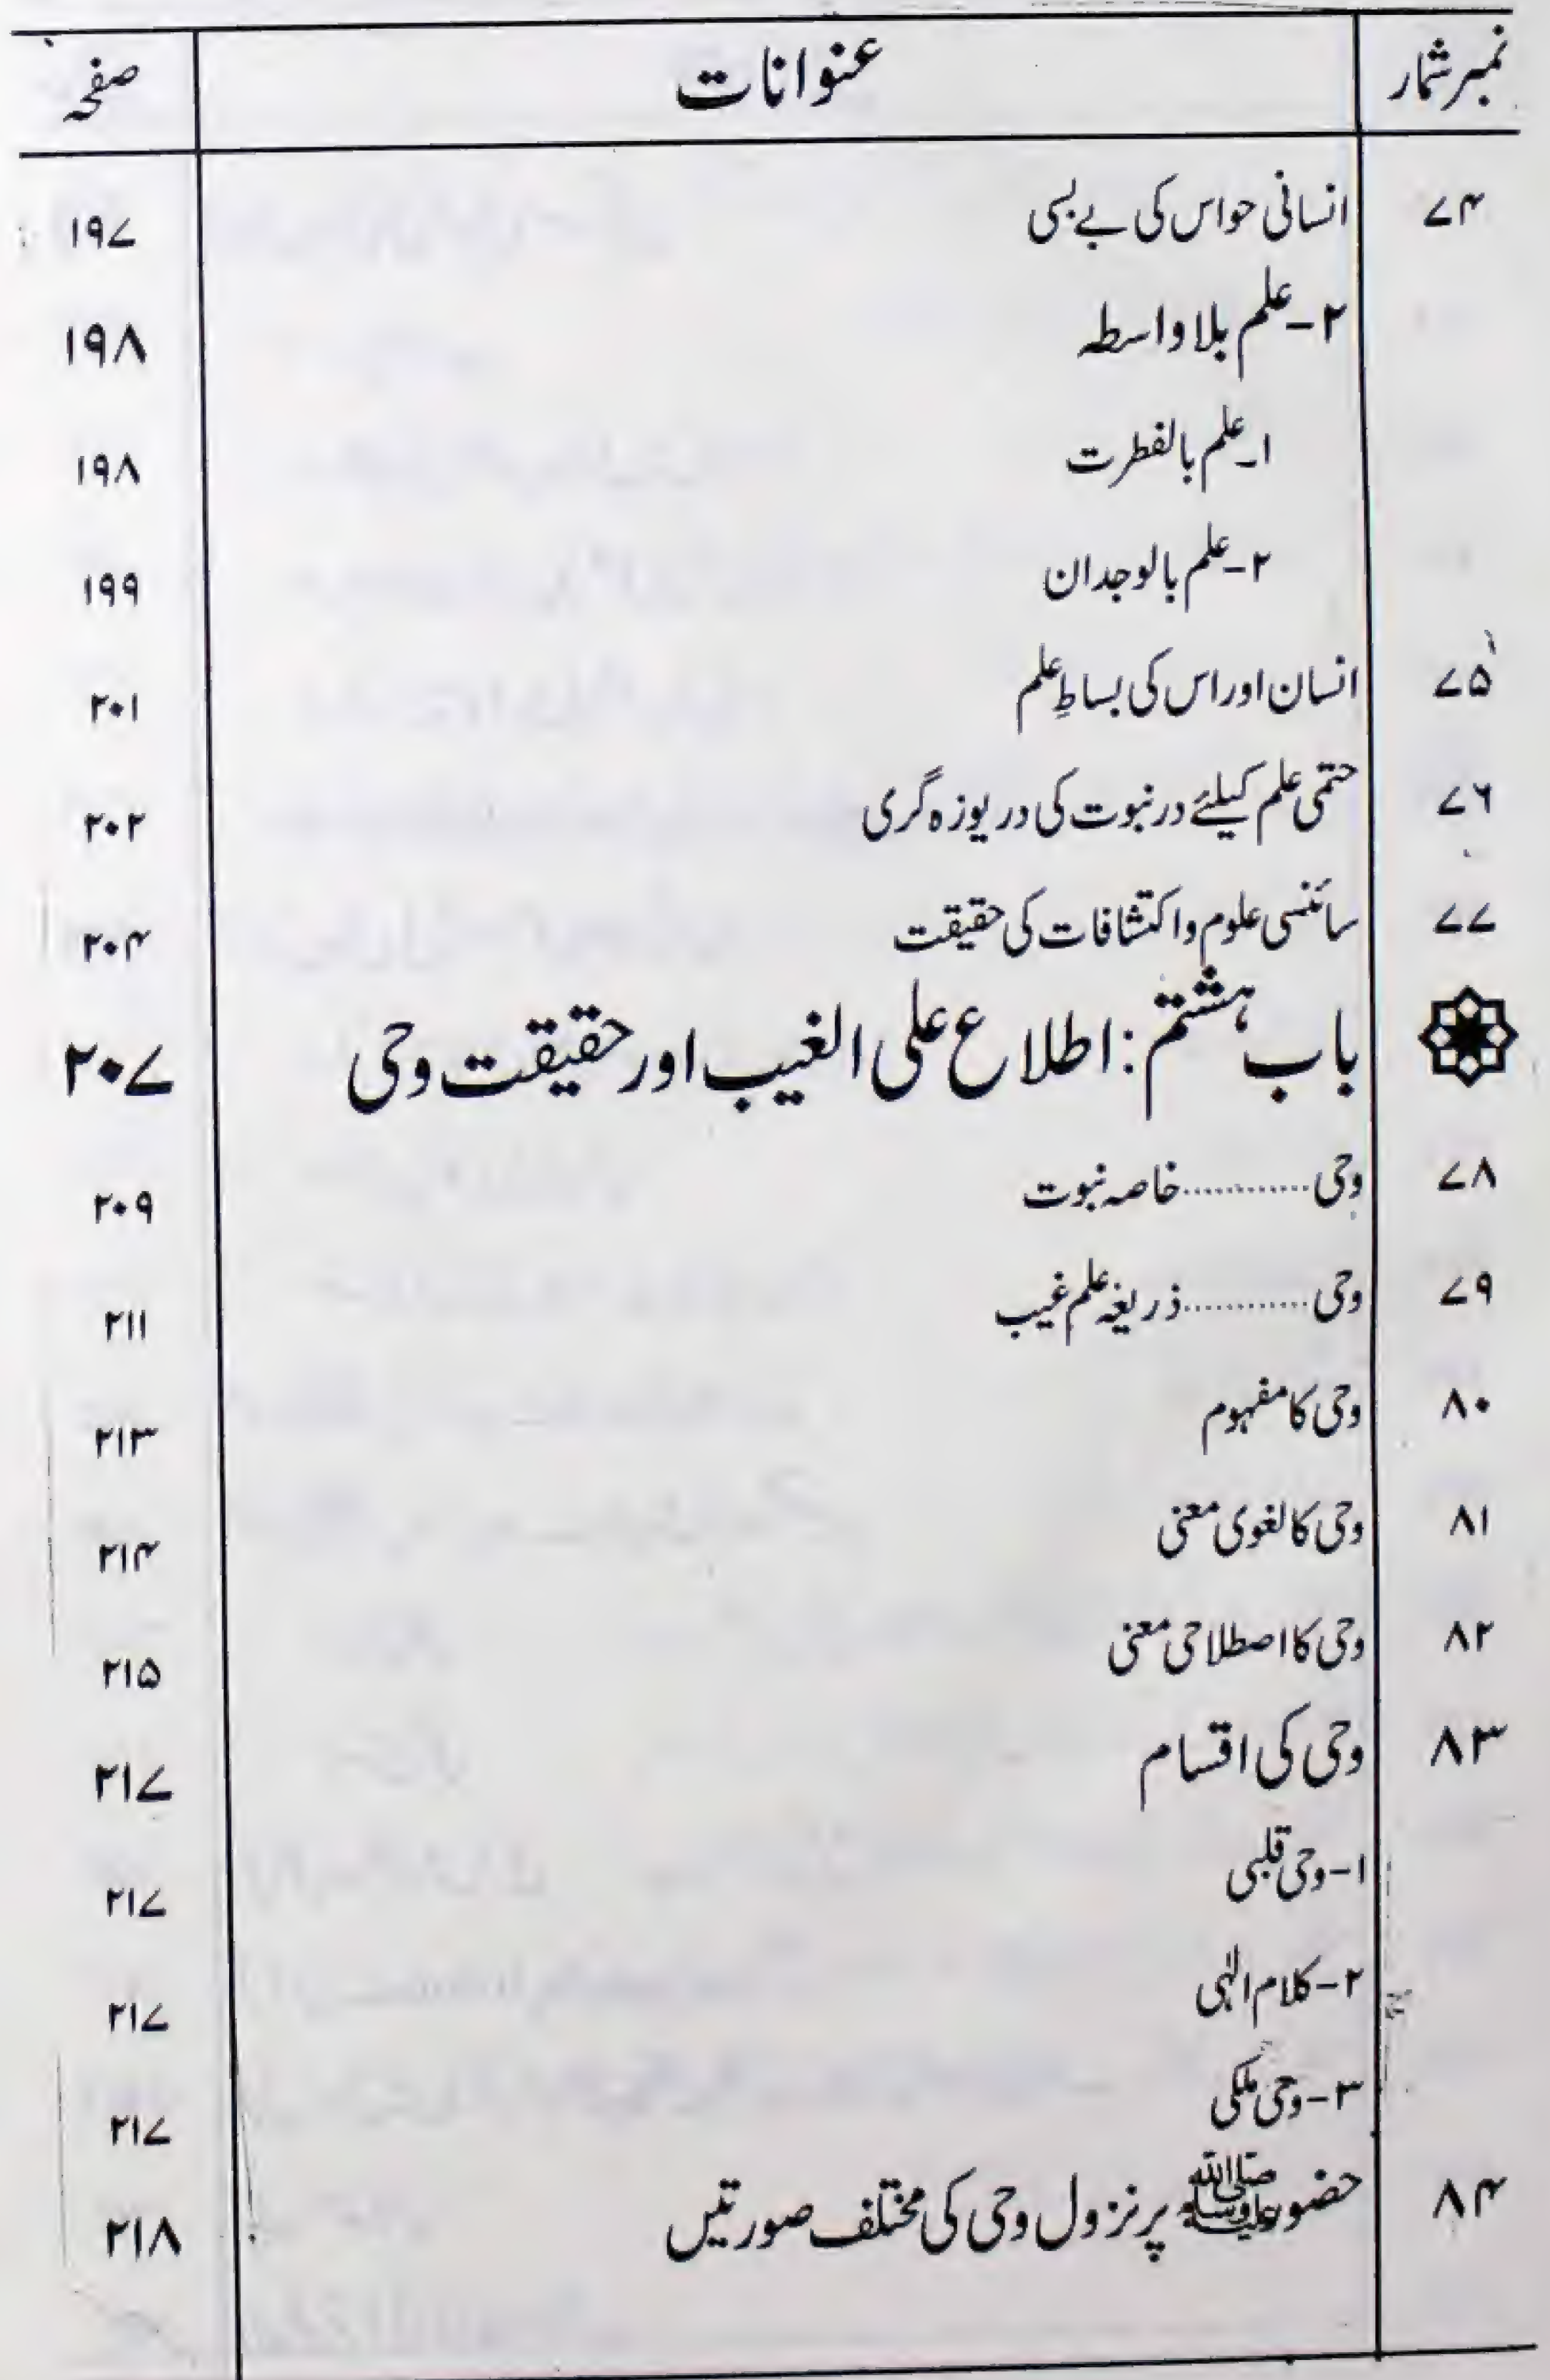 نمبرشمار عنوانات صفحہ
۷۴ انسانی حواس کی بے بسی ۱۹۷
۲- علم بلاواسطہ ۱۹۸
۱۔ علم بالفطرت ۱۹۸
۲- علم بالوجدان ۱۹۹
۷۵ انسان اور اس کی بساطِ علم ۲۰۱
۷۶ حتمی علم کیلئے در نبوت کی دریوزہ گری ۲۰۲
۷۷ سائنسی علوم و اکتشافات کی حقیقت ۲۰۴
باب ہشتم: اطلاع علی الغیب اور حقیقت وحی ۲۰۷
۷۸ وحی ............ خاصہ نبوت ۲۰۹
۷۹ وحی ............ ذریعہ علم غیب ۲۱۱
۸۰ وحی کا مفہوم ۲۱۳
۸۱ وحی کا لغوی معنی ۲۱۴
۸۲ وحی کا اصطلاحی معنی ۲۱۵
۸۳ وحی کی اقسام ۲۱۷
۱- وحی قلبی ۲۱۷
۲- کلام الٰہی ۲۱۷
۳- وحی ملکی ۲۱۷
۸۴ حضور ﷺ پر نزول وحی کی مختلف صورتیں ۲۱۸